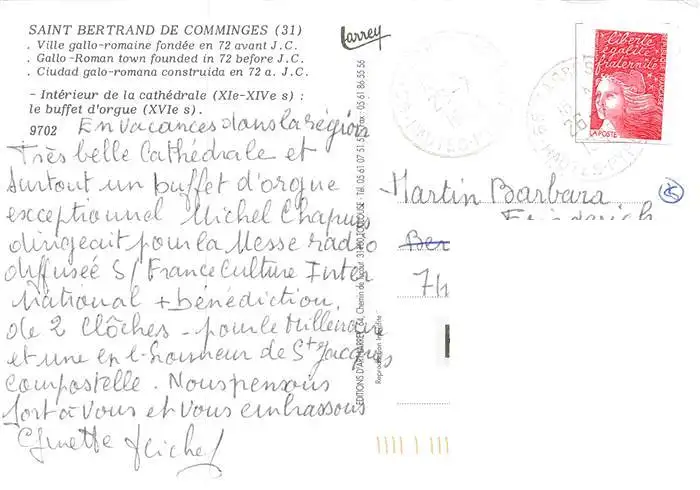 SAINT BERTRAND DE COMMINGES (31)
. Ville gallo-romaine fondée en 72 avant J.C.
. Gallo-Roman town founded in 72 before J.C.
. Ciudad galo-romana construida en 72 a. J.C.
- Intérieur de la cathédrale (XIe-XIVe s) :
le buffet d'orgue (XVIe s).
9702
En vacances dans la région
Très belle Cathédrale et
surtout un buffet d'orgue
exceptionnel Michel Chapuis
dirigeait pour la Messe radio
diffusée S/ France Culture Inter
national + bénédiction
de 2 Clôches - pour le Millénaire
et une en l'honneur de St Jacques
Compostelle. Nous pensons
fort à vous et vous embrassons
Ginette Michel
Larrey
EDITIONS D'ART LARREY, 64, Chemin de 31 TOULOUSE - Tél. 05 61 07 51 5 Fax : 05 61 86 55 56
Reproduction Interdite
liberté
égalité
fraternité
RÉPUBLIQUE FRANÇAISE
LA POSTE
Martin Barbara
Friederich
Ber
7h